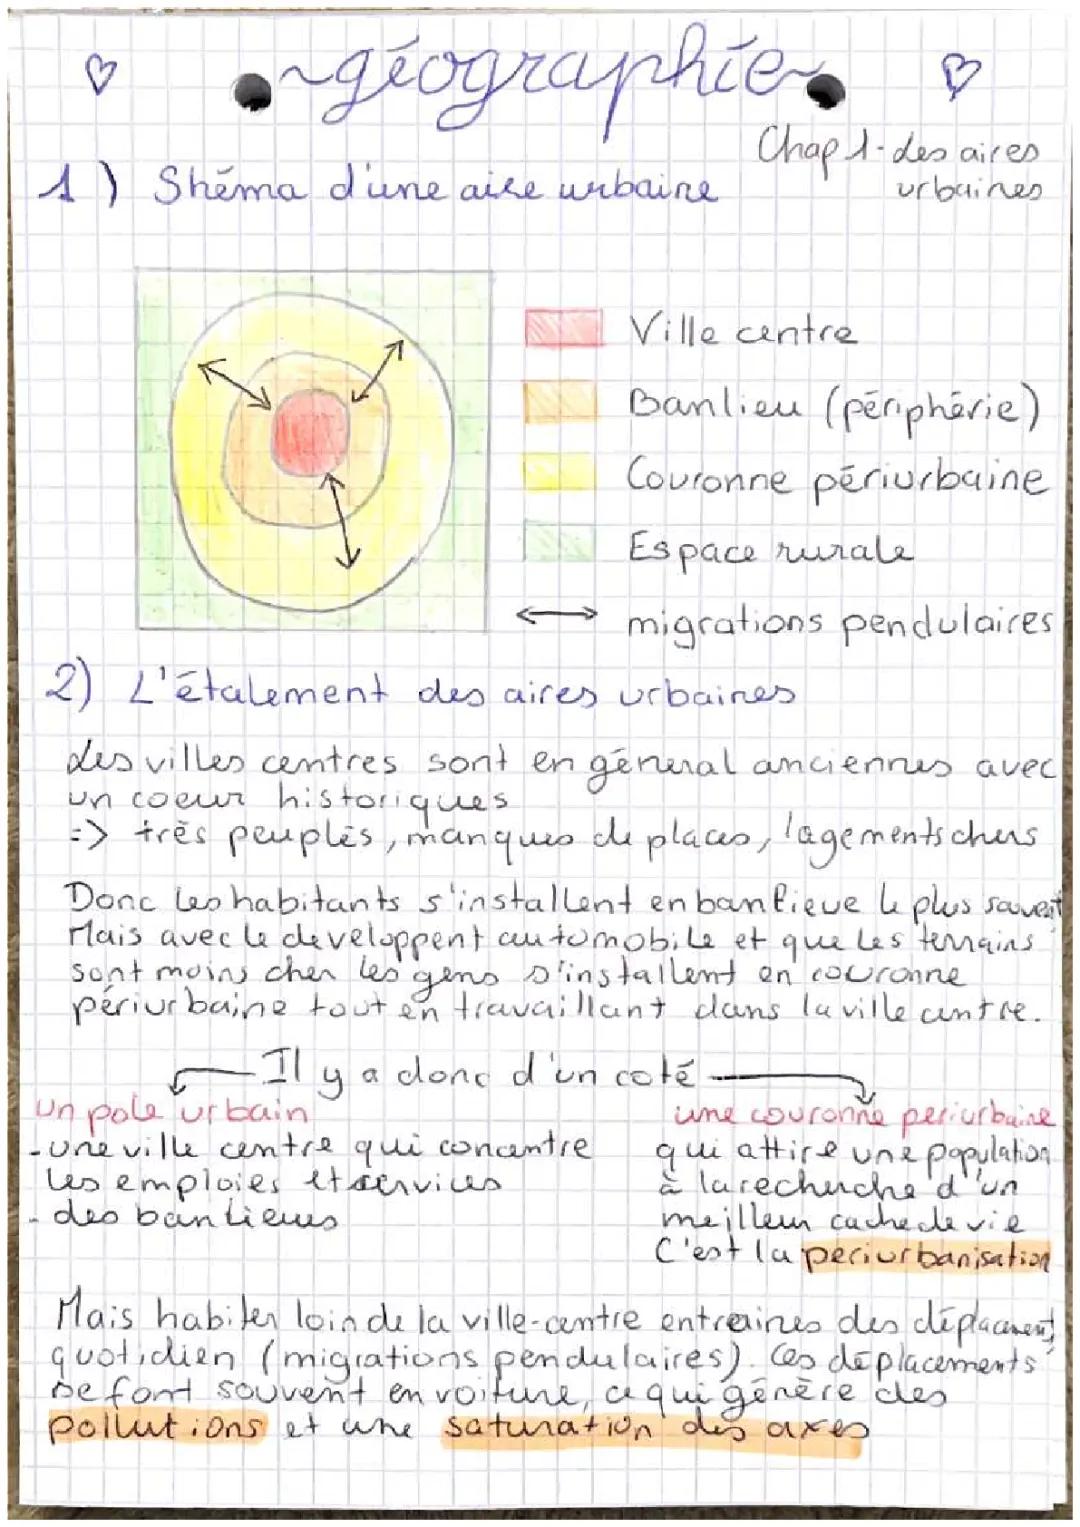 ~géographie~
Chap 1-des aires
urbaines
1) Shéma d'une aire urbaine
Ville centre
Banlieu (périphérie)
Couronne périurbaine
Espace rurale
migrations pendulaires
2) L'étalement des aires urbaines
Les villes centres sont en général anciennes avec
un coeur historiques
=> très peuplés, manques de places, logements chers
Donc les habitants s'installent en banlieue le plus souvent
Mais avec le developpent automobile et que les terrains
sont moins cher les gens s'installent en couronne
périurbaine tout en travaillant dans la ville centre.
Il y a donc d'un coté
un pole urbain
- une ville centre qui concentre
les emploies et services
- des banlieues
une couronne periurbaine
qui attire une population
à la recherche d'un
meilleur cadre de vie
C'est la periurbanisation
Mais habiter loin de la ville-centre entraines des déplacements
quotidien (migrations pendulaires). Ces déplacements
se font souvent en voiture, ce qui génère des
pollutions et une saturation des axes